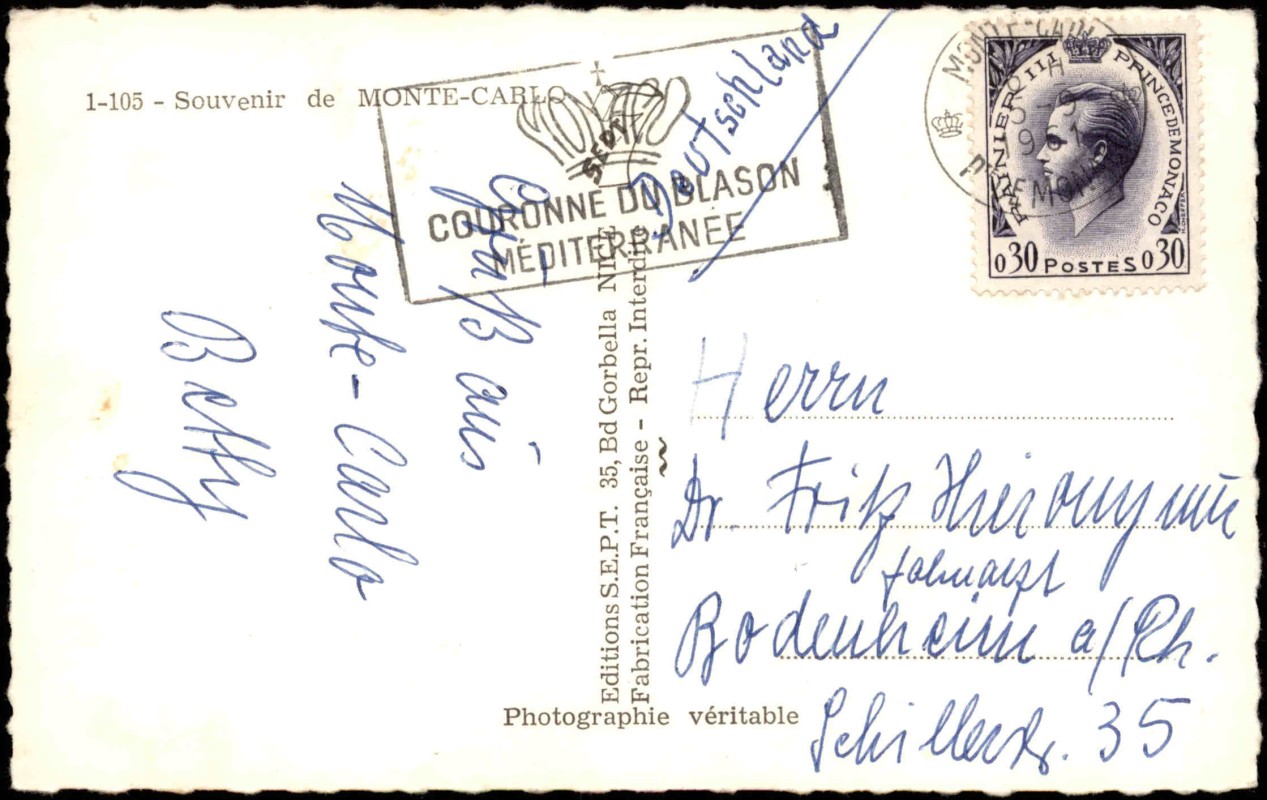 1-105 - Souvenir de MONTE-CARLO
SEPT
COURONNE DU BLASON
MÉDITERRANÉE
Deutschland
MONTE-CARLO
RAINIER III PRINCE DE MONACO
0,30 POSTES 0,30
Gruß aus
Monte-Carlo
Betty
Editions S.E.P.T. 35, Bd Gorbella NICE
Fabrication Française - Repr. Interdite
Herrn
Dr. Fritz Hieronymus
Zahnarzt
Bodenheim a/Rh.
Schillerstr. 35
Photographie véritable